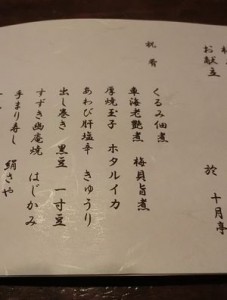 お献立
於 十月亭
祝肴
くるみ佃煮
車海老艶煮 梅貝旨煮
厚焼玉子 ホタルイカ
あわび肝塩辛 きゅうり
出し巻き 黒豆 一寸豆
すずき幽庵焼 はじかみ
手まり寿し 絹さや